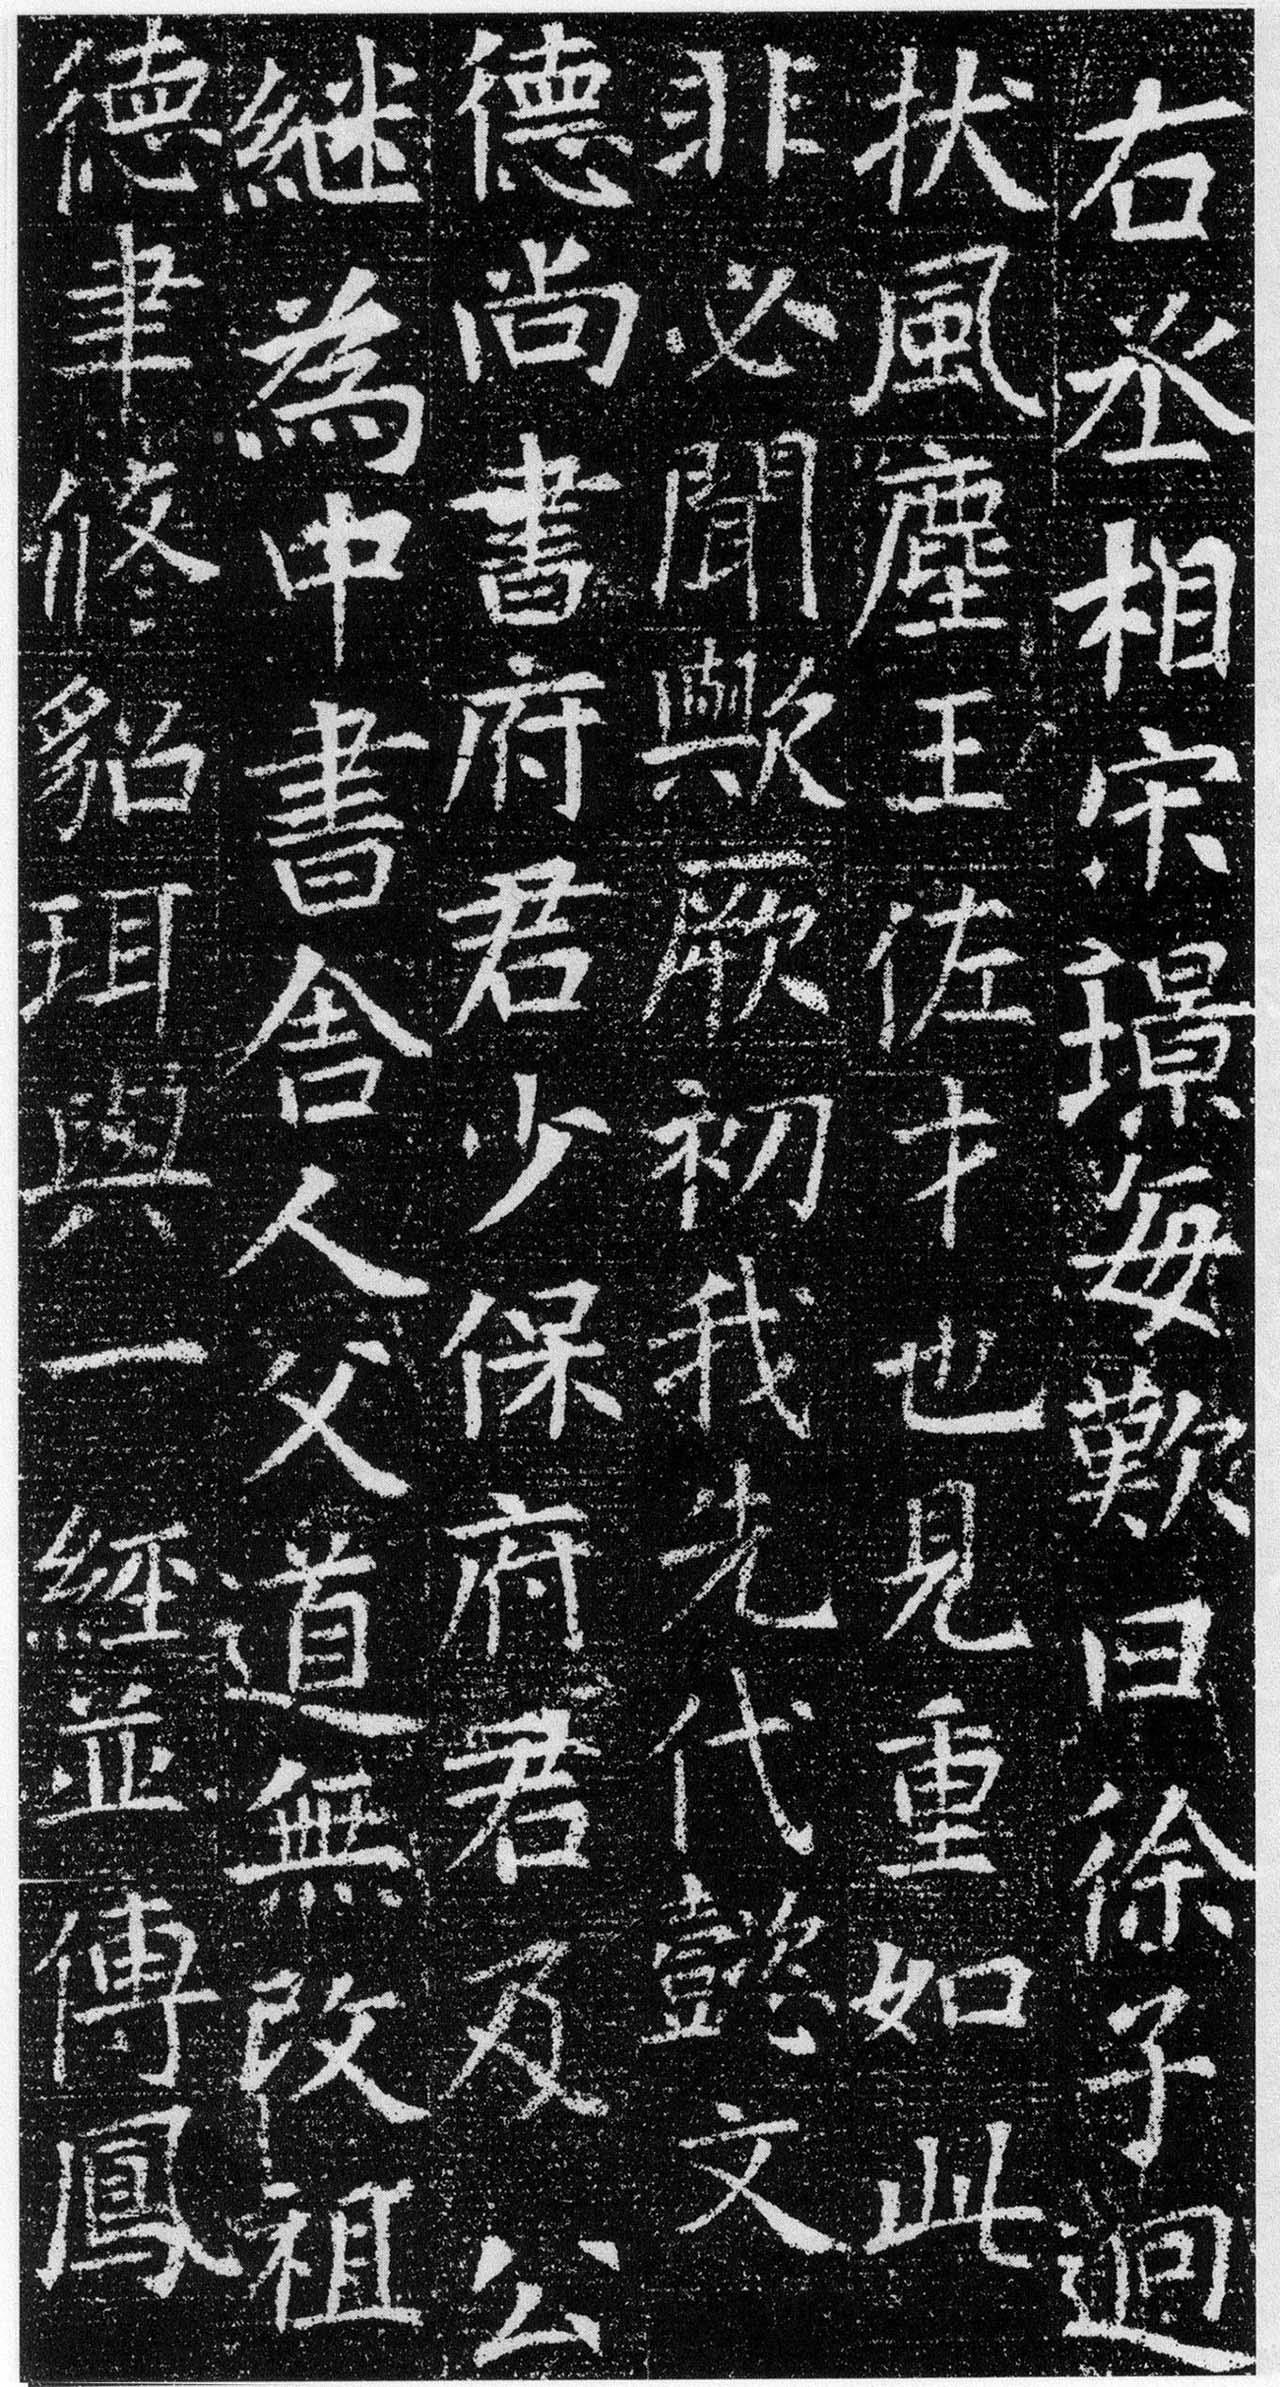 右丞相宋璟每歎曰徐子迥
狀風塵王佐才也見重如此
非必聞歟厥初我先代懿文
德尚書府君少保府君及公
継為中書舍人父道無改祖
德聿修貂珥與一經並傳鳳